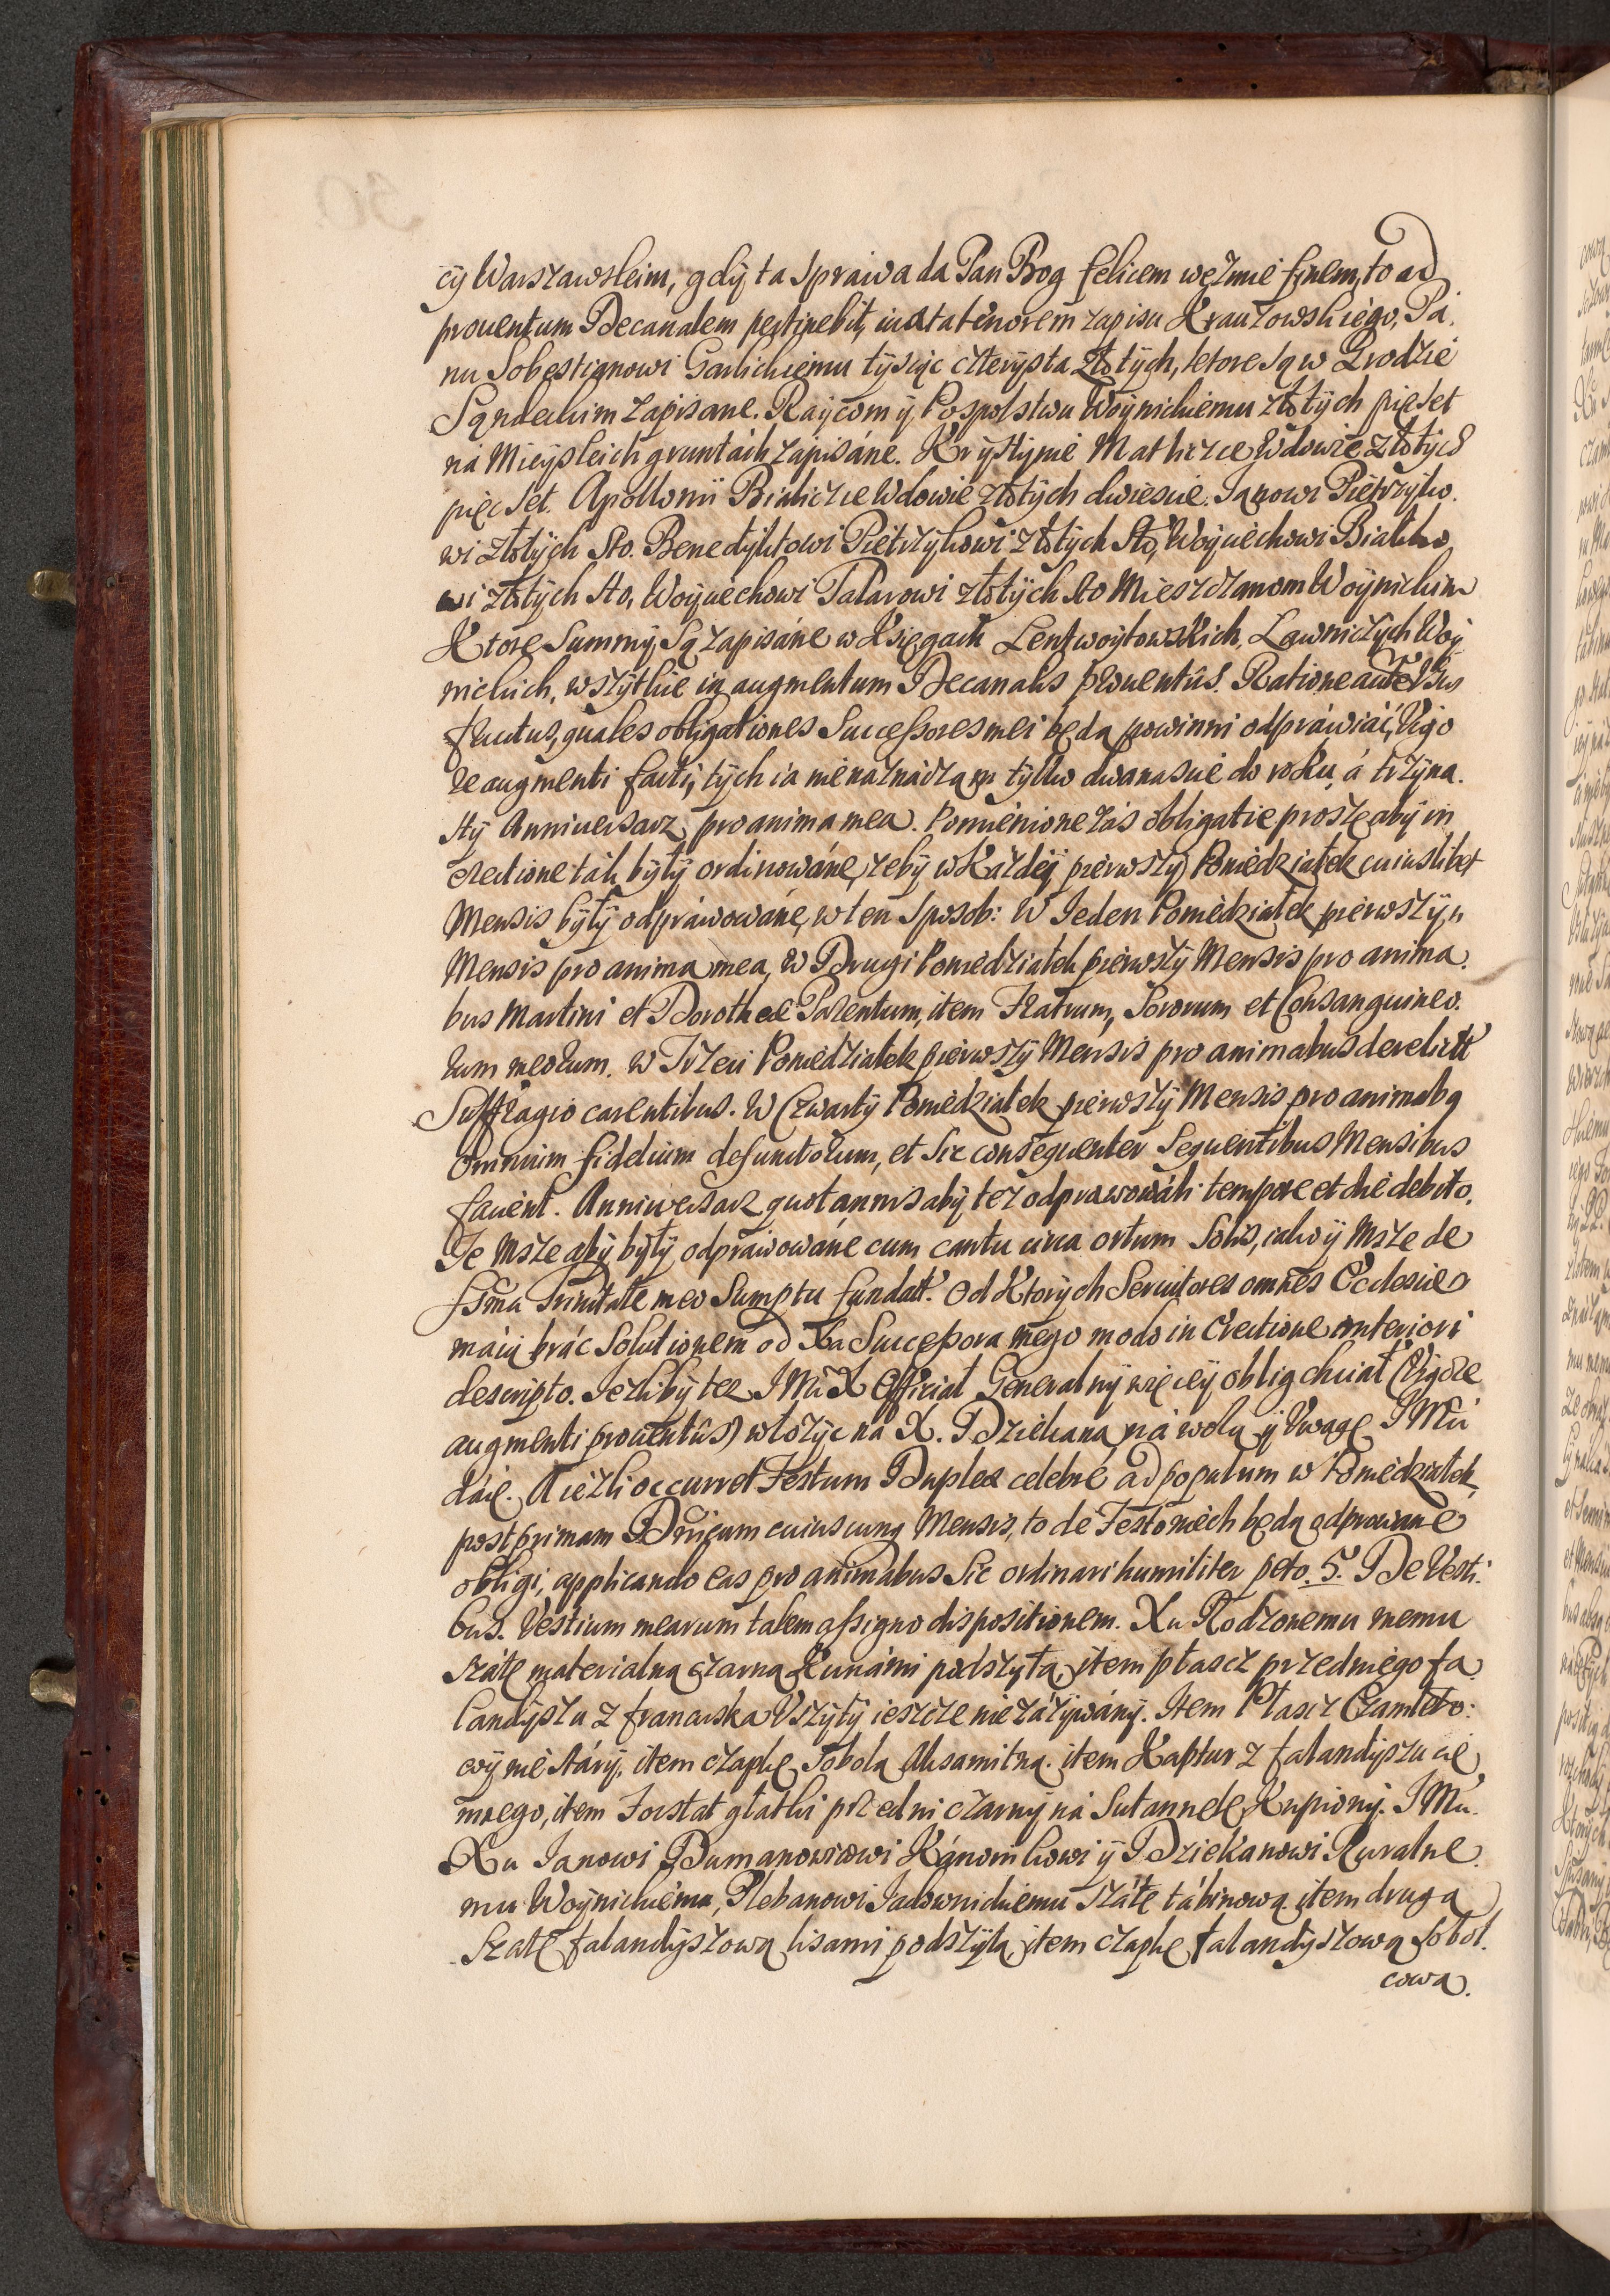 cÿ Warszawskim, gdÿ ta sprawa da Pan Bog felicem weźmie finem, to ad
prouentum Decanalem pertinebit, iuxta tenorem zapisu Krauzowskiego, Pa.
nu Sobestianowi Garlickiemu tÿsiąc czterÿsta złotÿch, ktore są w Grodzie
Sąndeckim zapisane. Raÿcom ÿ Pospolstwu Woÿnickiemu złotÿch pięset
ná Mieÿskich gruntách zápisáne. Krÿstÿnie Mathezce Wdowie złotÿch
pięc set. Apollonii Bialiczce Wdowie złotÿch dwiescie. Janowi Pietrzÿko.
wi złotÿch sto. Benedÿktowi Pietrzÿkowi złotÿch sto, Woÿciechowi Bialiko
wi złotÿch sto, Woÿciechowi Talarowi złotÿch sto Miesczanom Woÿnickim
Ktore Summÿ są zapisáne w Księgach Lentwoÿtowskich, Ławniczÿch Woÿ
nickich, wszÿtkie in augmentum Decanalis prouentûs. Ratione autẽ Usus
fructus, quales obligationes Successores mei będą powinni odpráwiáć, Vigo
re augmenti facti, tÿch ia nie náznáczam tÿlko dwanascie do roku, á trzÿna.
stÿ Anniuersarz pro anima mea. Pomienione zás obligatie proszę abÿ in
erectione ták bÿłÿ ordinowáne, zebÿ w Kázdÿ pierwszÿ Poniedziałek cuiuslibet
Mensis bÿłÿ odpráwowáne, w ten sposob: W Jeden Poniedziałek pierwszÿ
Mensis pro anima mea, W Drugi Poniedziałek pierwszÿ Mensis pro anima.
bus Martini et Dorotheæ Parentum, item Fratrum, Sororum et Consanguineo.
rum meorum. W Trzeci Poniedziałek pierwszÿ Mensis pro animabus derelict
Suffragio carentibus. W Czwartÿ Poniedziałek pierwszÿ Mensis pro animabq
Omnium fidelium defunctorum, et sic consequenter sequentibus Mensibus
fauent. Anniuersarz quotannis abÿ tez odprawowáli tempore et die debito.
Te Msze abÿ bÿłÿ odprawowáne cum cantu circa ortum Solis, iako ÿ Msze de
SSma Trinitate meo Sumptu fundat. Od Ktorÿch Seruitores omnes Ecclesiæ
máią bráć Solutionem od Xa Successora mego modo in Erectione anteriori
descripto. Jezlibÿ tez JMć X Official Generalnÿ więceÿ oblig chciał (Vigore
augmenti prouentûs) włozÿc ná X. Dziekana, ná wolą ÿ Uwagę JMci
dáię. A iezli occurret Festum Duplex celebre ad populum w Poniedziałek
post primam Dnĩcam cuiuscunq Mensis, to de Festo niech będą odprawane
obligi, applicando eas pro animabus sic ordinari humiliter peto. 5. De Vesti.
bus. Vestium mearum talem assigno dispositionem. Xu Rodzonemu memu
szátę materialną czarną Kunámi podszÿtą, item płascz przedniego fa
landÿszu z francuska Uszÿtÿ ieszcze nie záżÿwánÿ. Item Płascz Czamleto:
wÿ nie stárÿ, item czapkę sobolą Aksamitną. item Kaptur z falandÿszu cie
mnego, item Forsztat głatki przedni czarnÿ ná Sutannelę Kupionÿ. JMci.
Xu Janowi Dumanowiczowi Kánonikowi ÿ Dziekanowi Ruralne.
mu Woÿnickiemu, Plebanowi Jadownickiemu szátę tábinową. item drugą
szatę falandÿszową lisami podszÿtą, item czapkę falandÿszową sobol.
cowa.